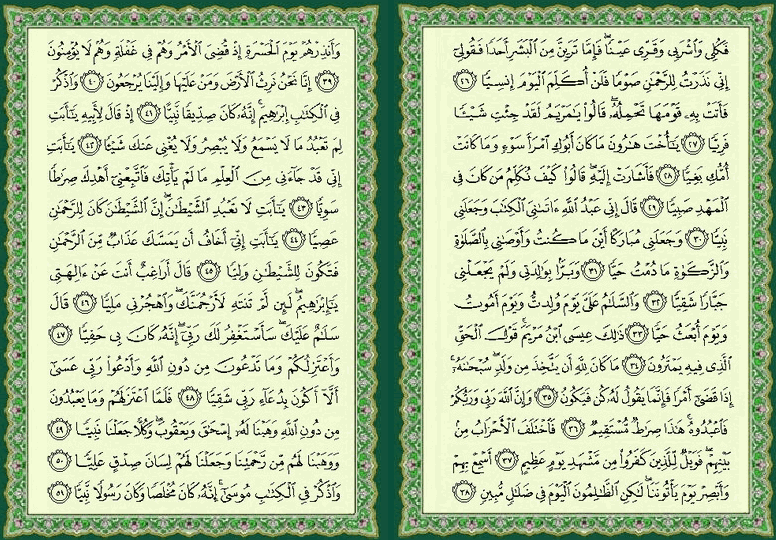 فَكُلِي وَاشْرَبِي وَقَرِّي عَيْنًا ۖ فَإِمَّا تَرَيِنَّ مِنَ الْبَشَرِ أَحَدًا فَقُولِي
إِنِّي نَذَرْتُ لِلرَّحْمَٰنِ صَوْمًا فَلَنْ أُكَلِّمَ الْيَوْمَ إِنسِيًّا ﴿٢٦﴾
فَأَتَتْ بِهِ قَوْمَهَا تَحْمِلُهُ ۖ قَالُوا يَا مَرْيَمُ لَقَدْ جِئْتِ شَيْئًا
فَرِيًّا ﴿٢٧﴾ يَا أُخْتَ هَارُونَ مَا كَانَ أَبُوكِ امْرَأَ سَوْءٍ وَمَا كَانَتْ
أُمُّكِ بَغِيًّا ﴿٢٨﴾ فَأَشَارَتْ إِلَيْهِ ۖ قَالُوا كَيْفَ نُكَلِّمُ مَن كَانَ فِي
الْمَهْدِ صَبِيًّا ﴿٢٩﴾ قَالَ إِنِّي عَبْدُ اللَّهِ آتَانِيَ الْكِتَابَ وَجَعَلَنِي
نَبِيًّا ﴿٣٠﴾ وَجَعَلَنِي مُبَارَكًا أَيْنَ مَا كُنتُ وَأَوْصَانِي بِالصَّلَاةِ
وَالزَّكَاةِ مَا دُمْتُ حَيًّا ﴿٣١﴾ وَبَرًّا بِوَالِدَتِي وَلَمْ يَجْعَلْنِي
جَبَّارًا شَقِيًّا ﴿٣٢﴾ وَالسَّلَامُ عَلَيَّ يَوْمَ وُلِدتُّ وَيَوْمَ أَمُوتُ
وَيَوْمَ أُبْعَثُ حَيًّا ﴿٣٣﴾ ذَٰلِكَ عِيسَى ابْنُ مَرْيَمَ ۚ قَوْلَ الْحَقِّ
الَّذِي فِيهِ يَمْتَرُونَ ﴿٣٤﴾ مَا كَانَ لِلَّهِ أَن يَتَّخِذَ مِن وَلَدٍ ۖ سُبْحَانَهُ ۚ
إِذَا قَضَىٰ أَمْرًا فَإِنَّمَا يَقُولُ لَهُ كُن فَيَكُونُ ﴿٣٥﴾ وَإِنَّ اللَّهَ رَبِّي وَرَبُّكُمْ
فَاعْبُدُوهُ ۚ هَٰذَا صِرَاطٌ مُّسْتَقِيمٌ ﴿٣٦﴾ فَاخْتَلَفَ الْأَحْزَابُ مِن
بَيْنِهِمْ ۖ فَوَيْلٌ لِّلَّذِينَ كَفَرُوا مِن مَّشْهَدِ يَوْمٍ عَظِيمٍ ﴿٣٧﴾ أَسْمِعْ بِهِمْ
وَأَبْصِرْ يَوْمَ يَأْتُونَنَا ۖ لَٰكِنِ الظَّالِمُونَ الْيَوْمَ فِي ضَلَالٍ مُّبِينٍ ﴿٣٨﴾
وَأَنذِرْهُمْ يَوْمَ الْحَسْرَةِ إِذْ قُضِيَ الْأَمْرُ وَهُمْ فِي غَفْلَةٍ وَهُمْ لَا يُؤْمِنُونَ
﴿٣٩﴾ إِنَّا نَحْنُ نَرِثُ الْأَرْضَ وَمَنْ عَلَيْهَا وَإِلَيْنَا يُرْجَعُونَ ﴿٤٠﴾ وَاذْكُرْ
فِي الْكِتَابِ إِبْرَاهِيمَ ۚ إِنَّهُ كَانَ صِدِّيقًا نَّبِيًّا ﴿٤١﴾ إِذْ قَالَ لِأَبِيهِ يَا أَبَتِ
لِمَ تَعْبُدُ مَا لَا يَسْمَعُ وَلَا يُبْصِرُ وَلَا يُغْنِي عَنكَ شَيْئًا ﴿٤٢﴾ يَا أَبَتِ
إِنِّي قَدْ جَاءَنِي مِنَ الْعِلْمِ مَا لَمْ يَأْتِكَ فَاتَّبِعْنِي أَهْدِكَ صِرَاطًا
سَوِيًّا ﴿٤٣﴾ يَا أَبَتِ لَا تَعْبُدِ الشَّيْطَانَ ۖ إِنَّ الشَّيْطَانَ كَانَ لِلرَّحْمَٰنِ
عَصِيًّا ﴿٤٤﴾ يَا أَبَتِ إِنِّي أَخَافُ أَن يَمَسَّكَ عَذَابٌ مِّنَ الرَّحْمَٰنِ
فَتَكُونَ لِلشَّيْطَانِ وَلِيًّا ﴿٤٥﴾ قَالَ أَرَاغِبٌ أَنتَ عَنْ آلِهَتِي
يَا إِبْرَاهِيمُ ۖ لَئِن لَّمْ تَنتَهِ لَأَرْجُمَنَّكَ ۖ وَاهْجُرْنِي مَلِيًّا ﴿٤٦﴾ قَالَ
سَلَامٌ عَلَيْكَ ۖ سَأَسْتَغْفِرُ لَكَ رَبِّي ۖ إِنَّهُ كَانَ بِي حَفِيًّا ﴿٤٧﴾
وَأَعْتَزِلُكُمْ وَمَا تَدْعُونَ مِن دُونِ اللَّهِ وَأَدْعُو رَبِّي عَسَىٰ
أَلَّا أَكُونَ بِدُعَاءِ رَبِّي شَقِيًّا ﴿٤٨﴾ فَلَمَّا اعْتَزَلَهُمْ وَمَا يَعْبُدُونَ
مِن دُونِ اللَّهِ وَهَبْنَا لَهُ إِسْحَاقَ وَيَعْقُوبَ ۖ وَكُلًّا جَعَلْنَا نَبِيًّا ﴿٤٩﴾
وَوَهَبْنَا لَهُم مِّن رَّحْمَتِنَا وَجَعَلْنَا لَهُمْ لِسَانَ صِدْقٍ عَلِيًّا ﴿٥٠﴾
وَاذْكُرْ فِي الْكِتَابِ مُوسَىٰ ۚ إِنَّهُ كَانَ مُخْلَصًا وَكَانَ رَسُولًا نَّبِيًّا ﴿٥١﴾